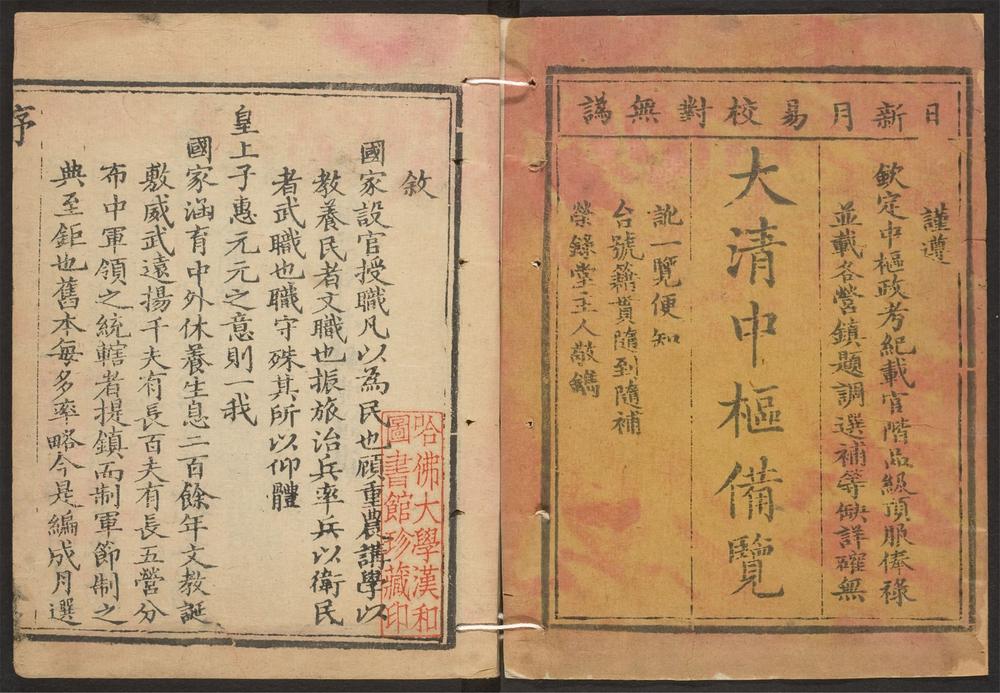 日新月易校對無譌
謹遵
欽定中樞政考紀載官階品級頂服俸祿
並載各營鎮題調選補等缺詳確無
大清中樞備覽
訛一覽便知
台號籍貫隨到隨補
榮錄堂主人敬鐫
敘
國家設官授職凡以為民也顧重農講學以
教養民者文職也振旅治兵率兵以衛民
者武職也職守殊其所以仰體
皇上子惠元元之意則一我
國家涵育中外休養生息二百餘年文教誕
敷威武遠揚千夫有長百夫有長五營分
布中軍領之統轄者提鎮而制軍節制之
典至鉅也舊本每多率略今是編成月選
序
哈佛大學漢和
圖書館珍藏印